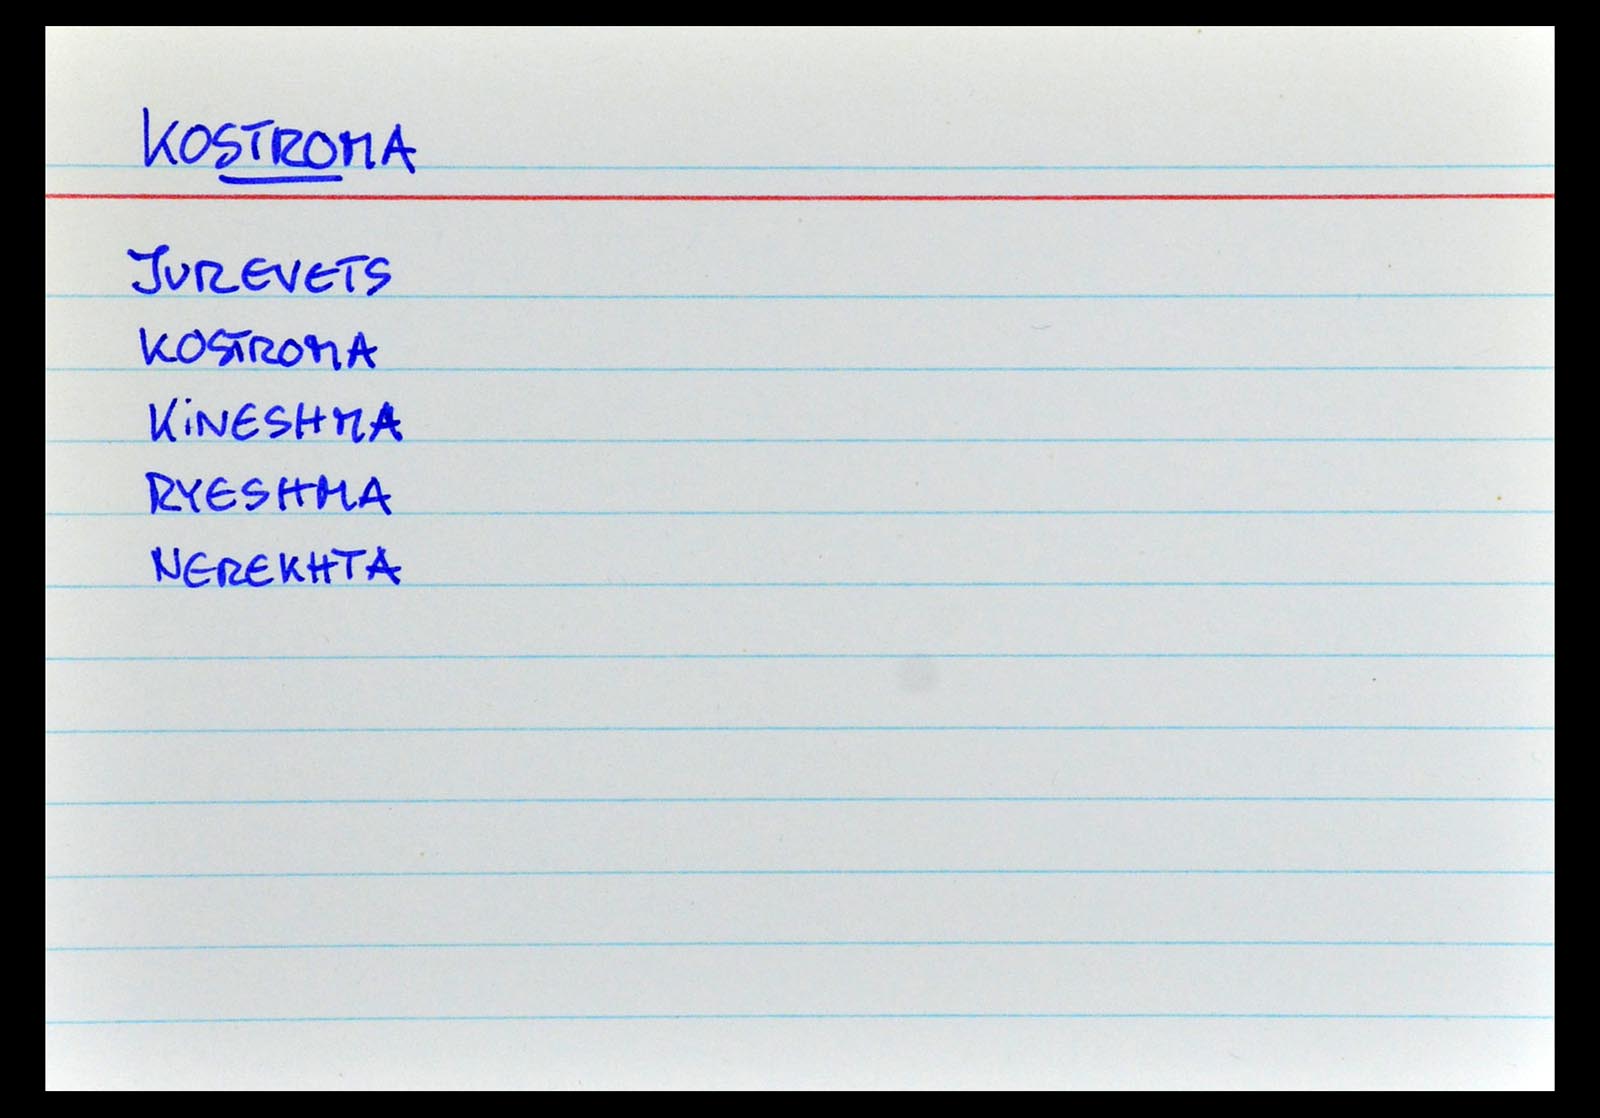 KOSTROMA
JUREVETS
KOSTROMA
KiNESHMA
RYESHMA
NEREKHTA